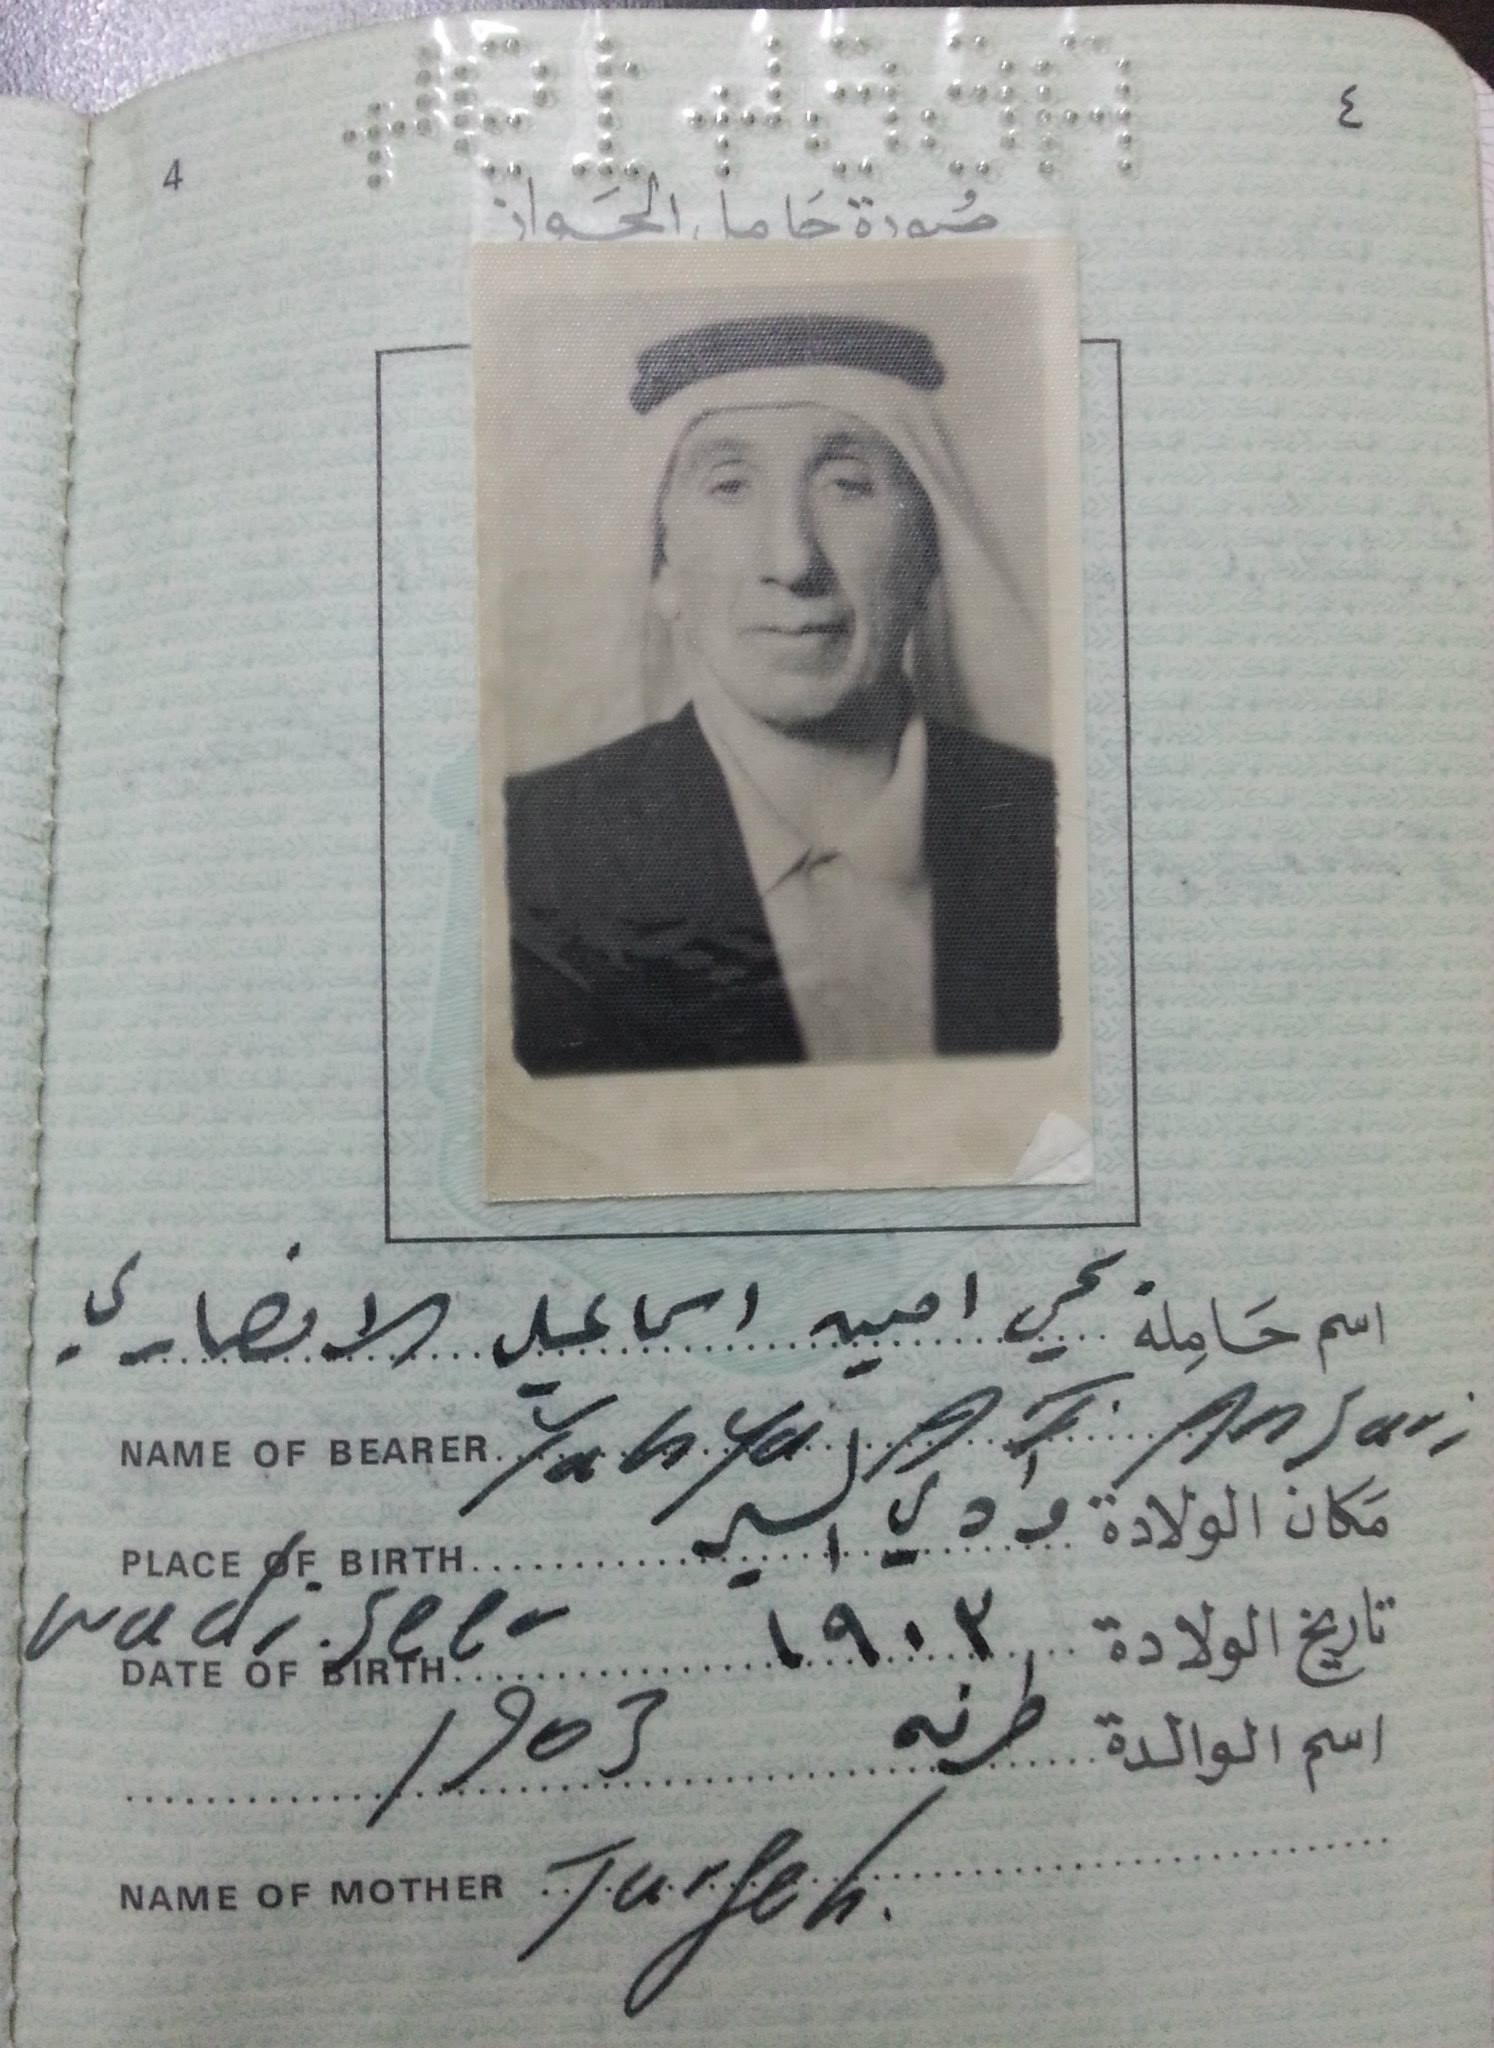 4 ٤
صُورة حَامل الجَواز
اسم حَامِله يحيى امين اسماعيل الانصاري
NAME OF BEARER Yahya A I Ansari
مَكان الولادة وادي السير
PLACE OF BIRTH
wadi seer
تاريخ الولادة ١٩٠٣
DATE OF BIRTH
1903
اسم الوالدة طرفه
NAME OF MOTHER Turfeh.